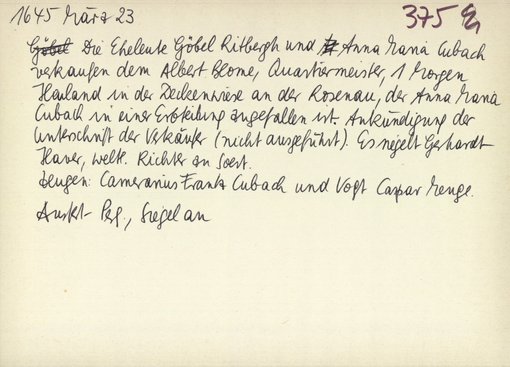 1645 März 23 375
Göbel Die Eheleute Göbel Ritbergh und Anna Maria Cubach
verkaufen dem Albert Blome, Quartiermeister, 1 Morgen
Heuland in der Deckenwiese an der Rosenau, der Anna Maria
Cubach in einer Erbteilung angefallen ist. Ankündigung der
Unterschrift der Verkäufer (nicht ausgeführt). Es siegelt Gerhardt
Haver, weltl. Richter zu Soest.
Zeugen: Camerarius Frantz Cubach und Vogt Caspar Menge.
Ausf. Perg., Siegel an